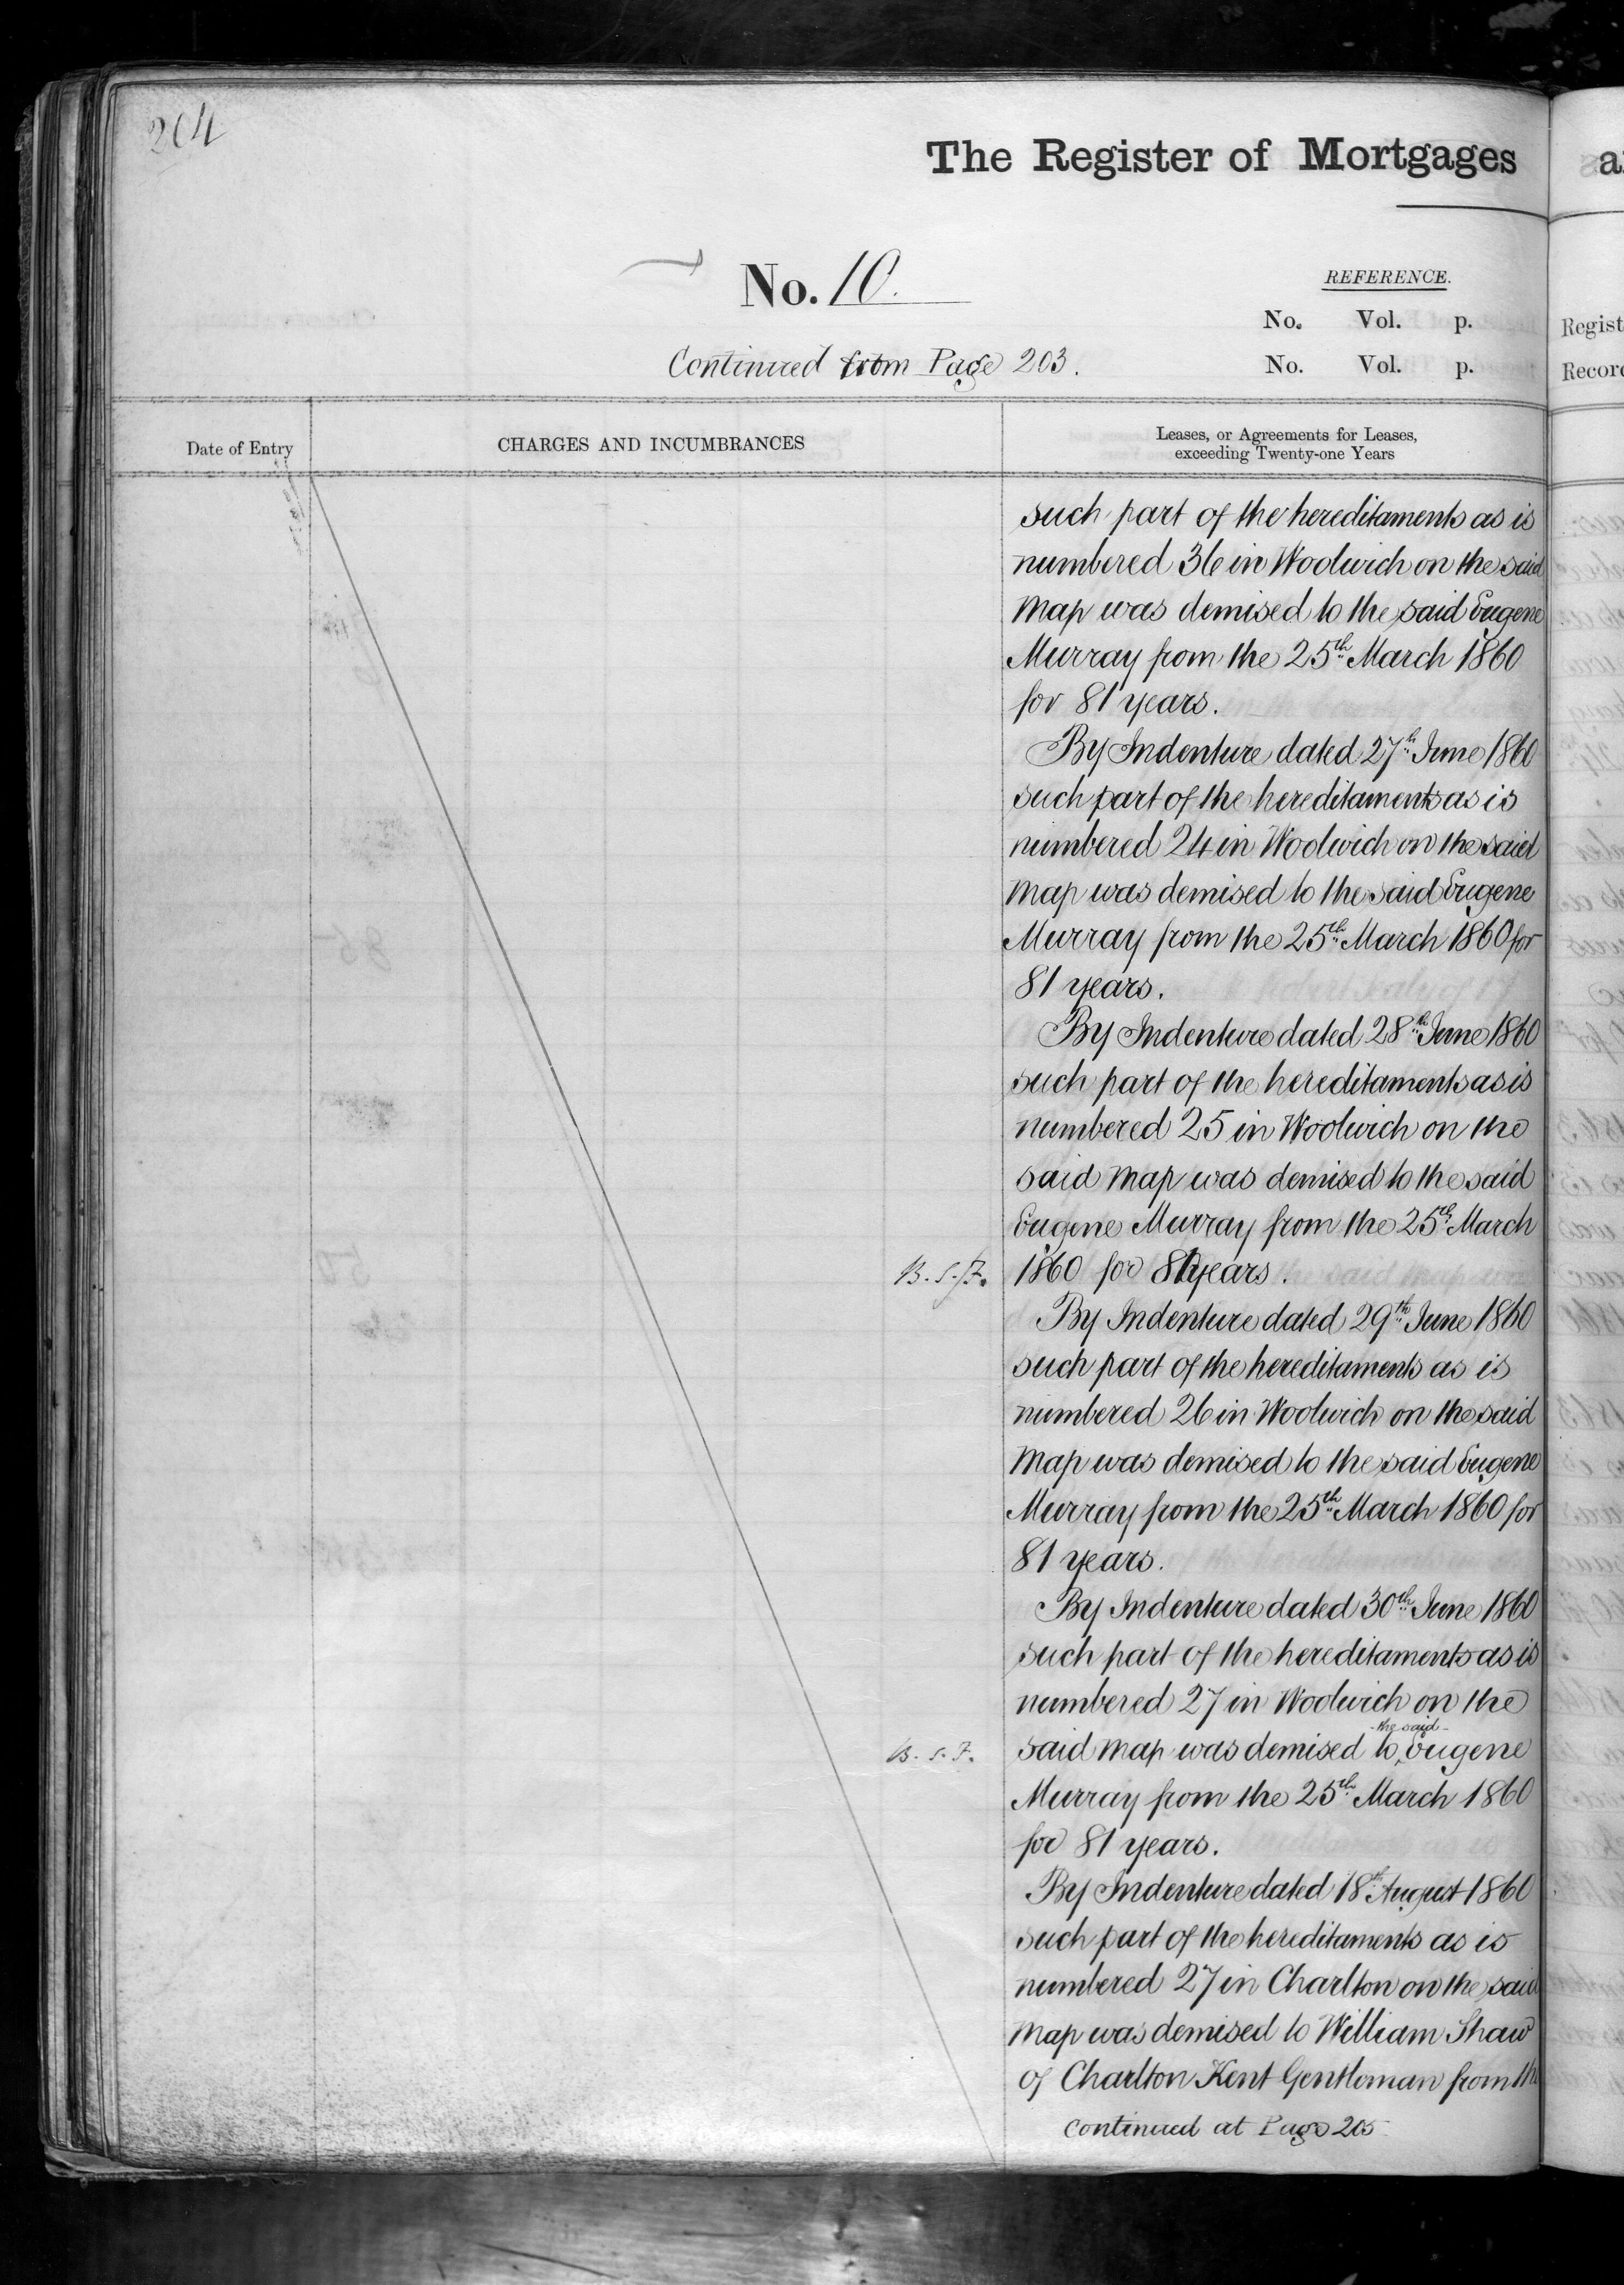 204
The Register of Mortgages
No. 10.
REFERENCE.
No. Vol. p.
No. Vol. p.
Continued from Page 203.
Regist
Record
Date of Entry
CHARGES AND INCUMBRANCES
Leases, or Agreements for Leases,
exceeding Twenty-one Years
such part of the hereditaments as is
numbered 36 in Woolwich on the said
map was demised to the said Eugene
Murray from the 25th March 1860
for 81 years.
By Indenture dated 27th June 1860
such part of the hereditaments as is
numbered 24 in Woolwich on the said
map was demised to the said Eugene
Murray from the 25th March 1860 for
81 years.
By Indenture dated 28th June 1860
such part of the hereditaments as is
numbered 25 in Woolwich on the
said map was demised to the said
Eugene Murray from the 25th March
B.S.F. 1860 for 81 years.
By Indenture dated 29th June 1860
such part of the hereditaments as is
numbered 26 in Woolwich on the said
map was demised to the said Eugene
Murray from the 25th March 1860 for
81 years.
By Indenture dated 30th June 1860
such part of the hereditaments as is
numbered 27 in Woolwich on the
B.S.F. said map was demised to the said Eugene
Murray from the 25th March 1860
for 81 years.
By Indenture dated 18th August 1860
such part of the hereditaments as is
numbered 27 in Charlton on the said
map was demised to William Shaw
of Charlton Kent Gentleman from the
continued at Page 205